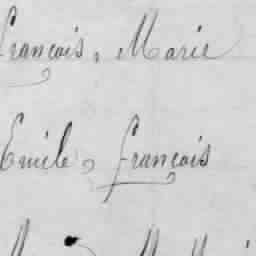 François, Marie
Emile, François